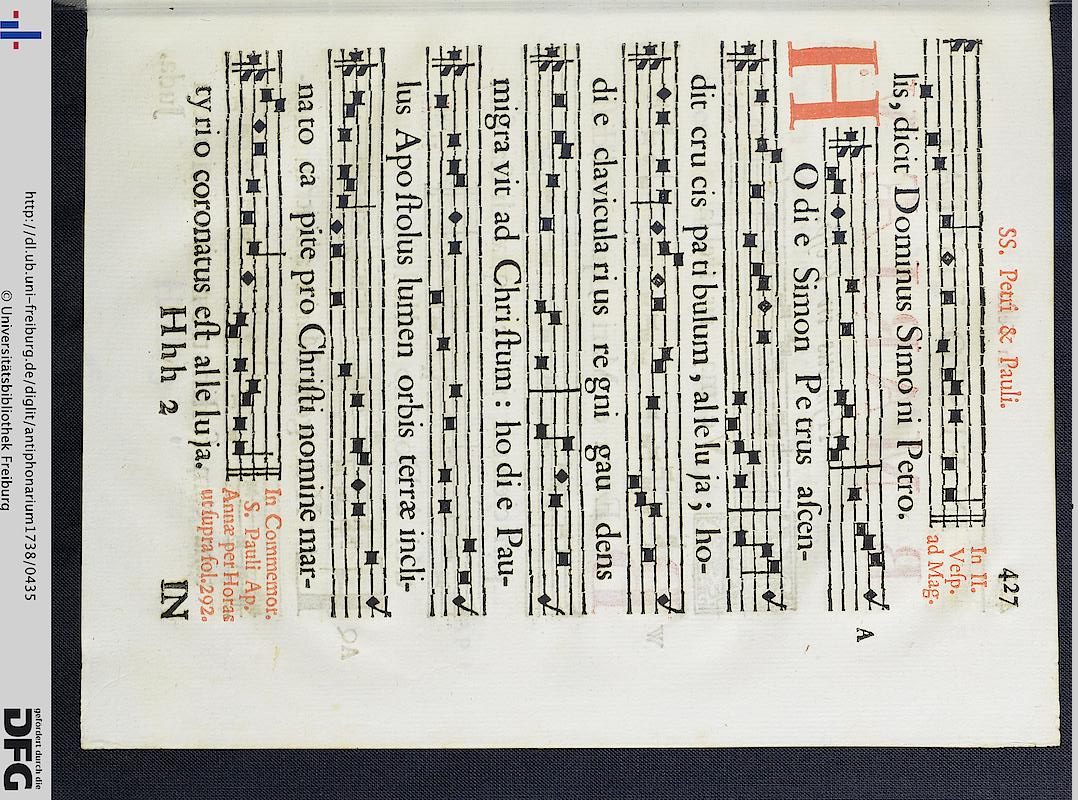 SS. Petri & Pauli.
427
lis, dicit Dominus Simo ni Petro.
In II.
Vesp.
ad Mag.
A
HOdi e Simon Pe trus ascen-
dit cru cis pa ti bulum, al le lu ja; ho-
di e clavicula ri us re gni gau dens
migra vit ad Chri stum: ho di e Pau-
lus Apo stolus lumen orbis terræ incli-
na to ca pite pro Christi nomine mar-
ty ri o coronatus est al le lu ja.
In Commemor.
S. Pauli Ap.
Annæ per Horas
ut supra fol. 292.
Hhh 2
IN
http://dl.ub.uni-freiburg.de/diglit/antiphonarium1738/0435
© Universitätsbibliothek Freiburg
gefördert durch die
DFG